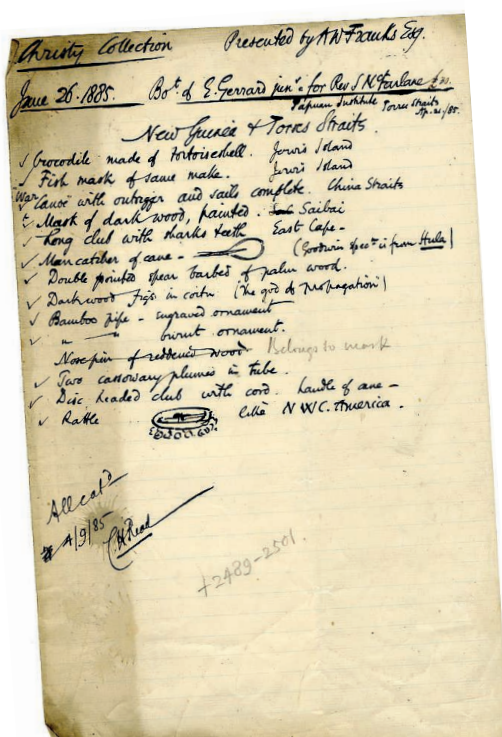 Christy Collection Presented by A W Franks Esq.
June 26. 1885. Bot. of E. Gerrard junr. for Rev S McFarlane
Papuan Institute Torres Straits
New Guinea & Torres Straits.
✓ Crocodile made of tortoiseshell. Jervis Island
✓ Fish mask of same make. Jervis Island
War Canoe with outrigger and sails complete. China Straits
Mask of dark wood, painted. Saibai
✓ Long club with sharks teeth East Cape -
✓ Man catcher of cane - (Goodwin's spect. is from Hula)
✓ Double pointed spear barbed of palm wood.
✓ Darkwood figs in coitu (the god of propagation)
✓ Bamboo pipe - engraved ornament
✓ " " burnt ornament.
Nose pin of reddened wood. Belongs to mask
✓ Two cassowary plumes in tube.
✓ Disc headed club with cord. handle of cane -
✓ Rattle like N W C. America.
All catd
4/9/85
C H Read
+2489-2501.